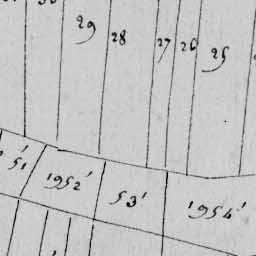 29 28 27 26 25
51' 1952' 53' 1954'